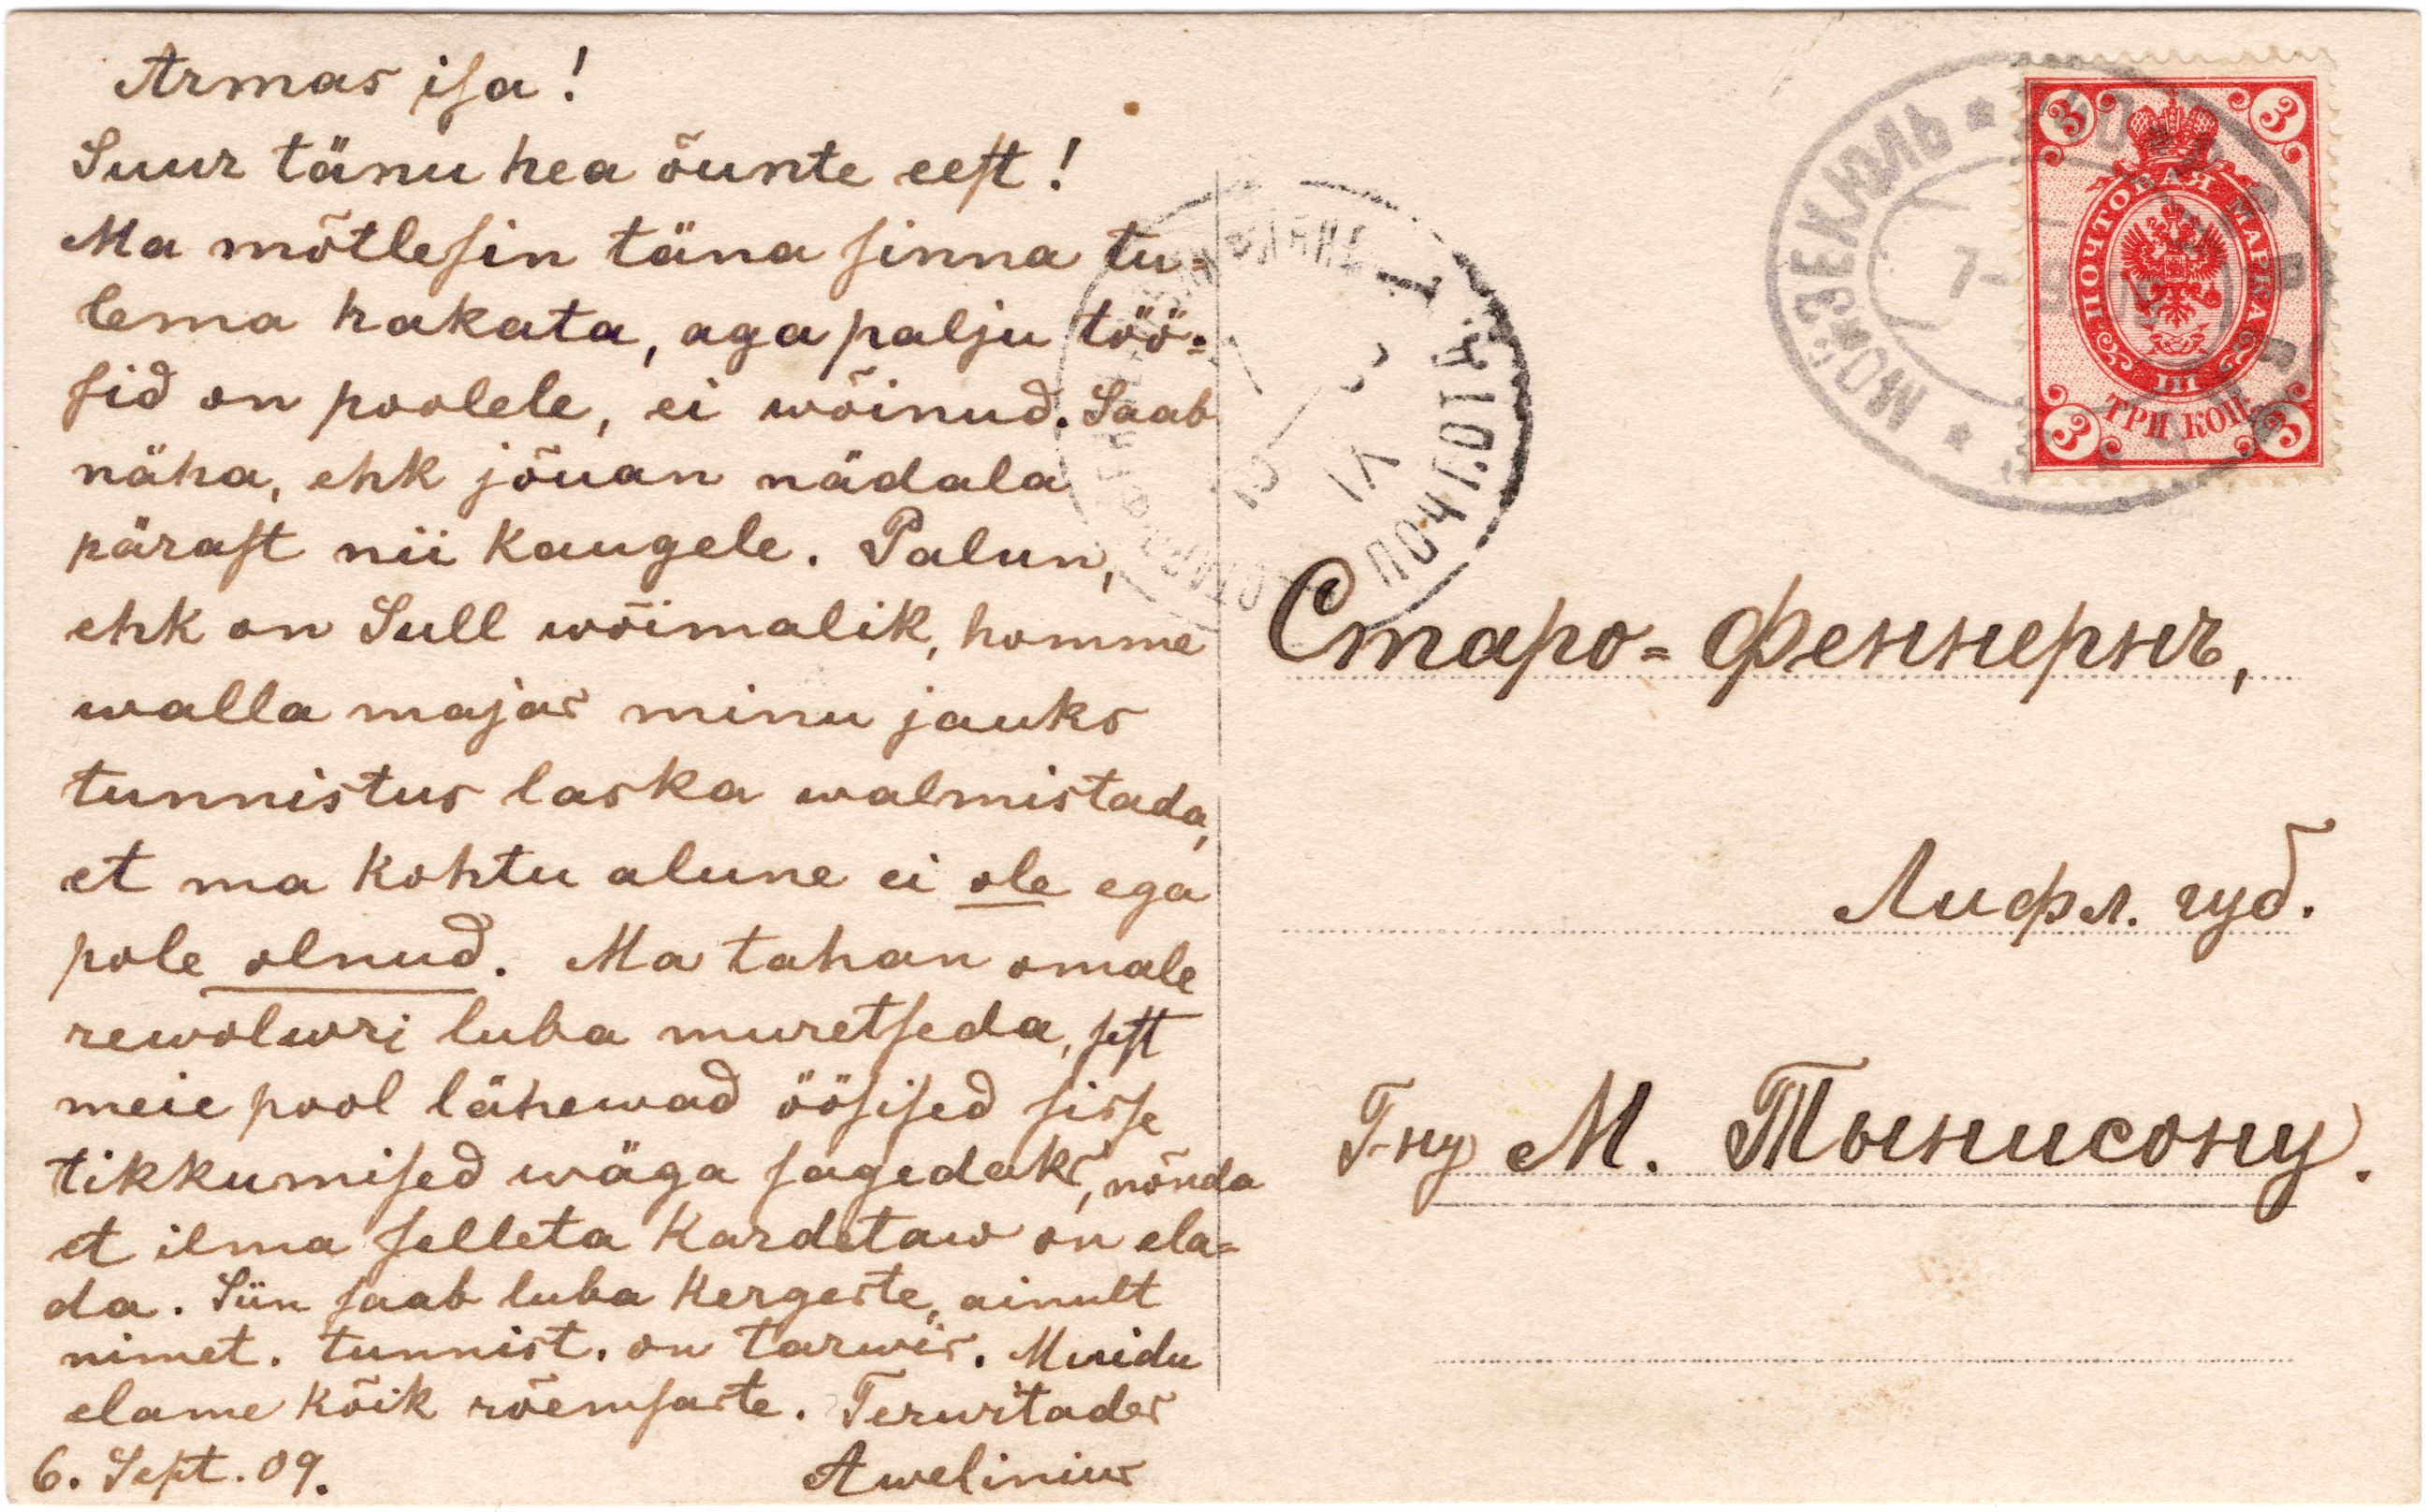 Armas isa!
Suur tänu hea õunte eest!
Ma mõtlesin täna sinna tu=
lema hakata, aga palju töö=
sid on poolele, ei wõinud. Saab
näha, ehk jõuan nädala
pärast nii kaugele. Palun,
ehk on Sull wõimalik, homme
walla majas minu jauks
tunnistus laska walmistada,
et ma kohtu alune ei ole ega
pole olnud. Ma tahan omale
rewolwri luba muretseda, sest
meie pool lähewad öösised sisse
tikkumised wäga sagedaks, nõnda
et ilma selleta kardetaw on ela=
da. Siin saab luba kergeste, ainult
nimet. tunnist. on tarwis. Muidu
elame kõik rõemsaste. Terwitades
6. Sept. 09.
Awelinius
МОЙЗЕКЮЛЬ
7-
ПОЧТОВАЯ МАРКА
3
3
3
3
III
ТРИ КОП.
ПОЧТ. ОТД.
IX
Старо=Феннернъ,
Лифл. губ.
Г-ну М. Тынисону.